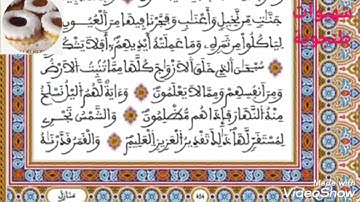 جَنَّٰتٍ مِّن نَّخِيلٍ وَأَعْنَٰبٍ وَفَجَّرْنَا فِيهَا مِنَ ٱلْعُيُونِ
لِيَأْكُلُوا۟ مِن ثَمَرِهِۦ وَمَا عَمِلَتْهُ أَيْدِيهِمْ أَفَلَا يَشْكُرُونَ
سُبْحَٰنَ ٱلَّذِى خَلَقَ ٱلْأَزْوَٰجَ كُلَّهَا مِمَّا تُنۢبِتُ ٱلْأَرْضُ
وَمِنْ أَنفُسِهِمْ وَمِمَّا لَا يَعْلَمُونَ وَءَايَةٌ لَّهُمُ ٱلَّيْلُ نَسْلَخُ
مِنْهُ ٱلنَّهَارَ فَإِذَا هُم مُّظْلِمُونَ وَٱلشَّمْسُ تَجْرِى
لِمُسْتَقَرٍّ لَّهَا ذَٰلِكَ تَقْدِيرُ ٱلْعَزِيزِ ٱلْعَلِيمِ وَٱلْقَمَرَ قَدَّرْنَٰهُ
منازل
Made with
VideoShow